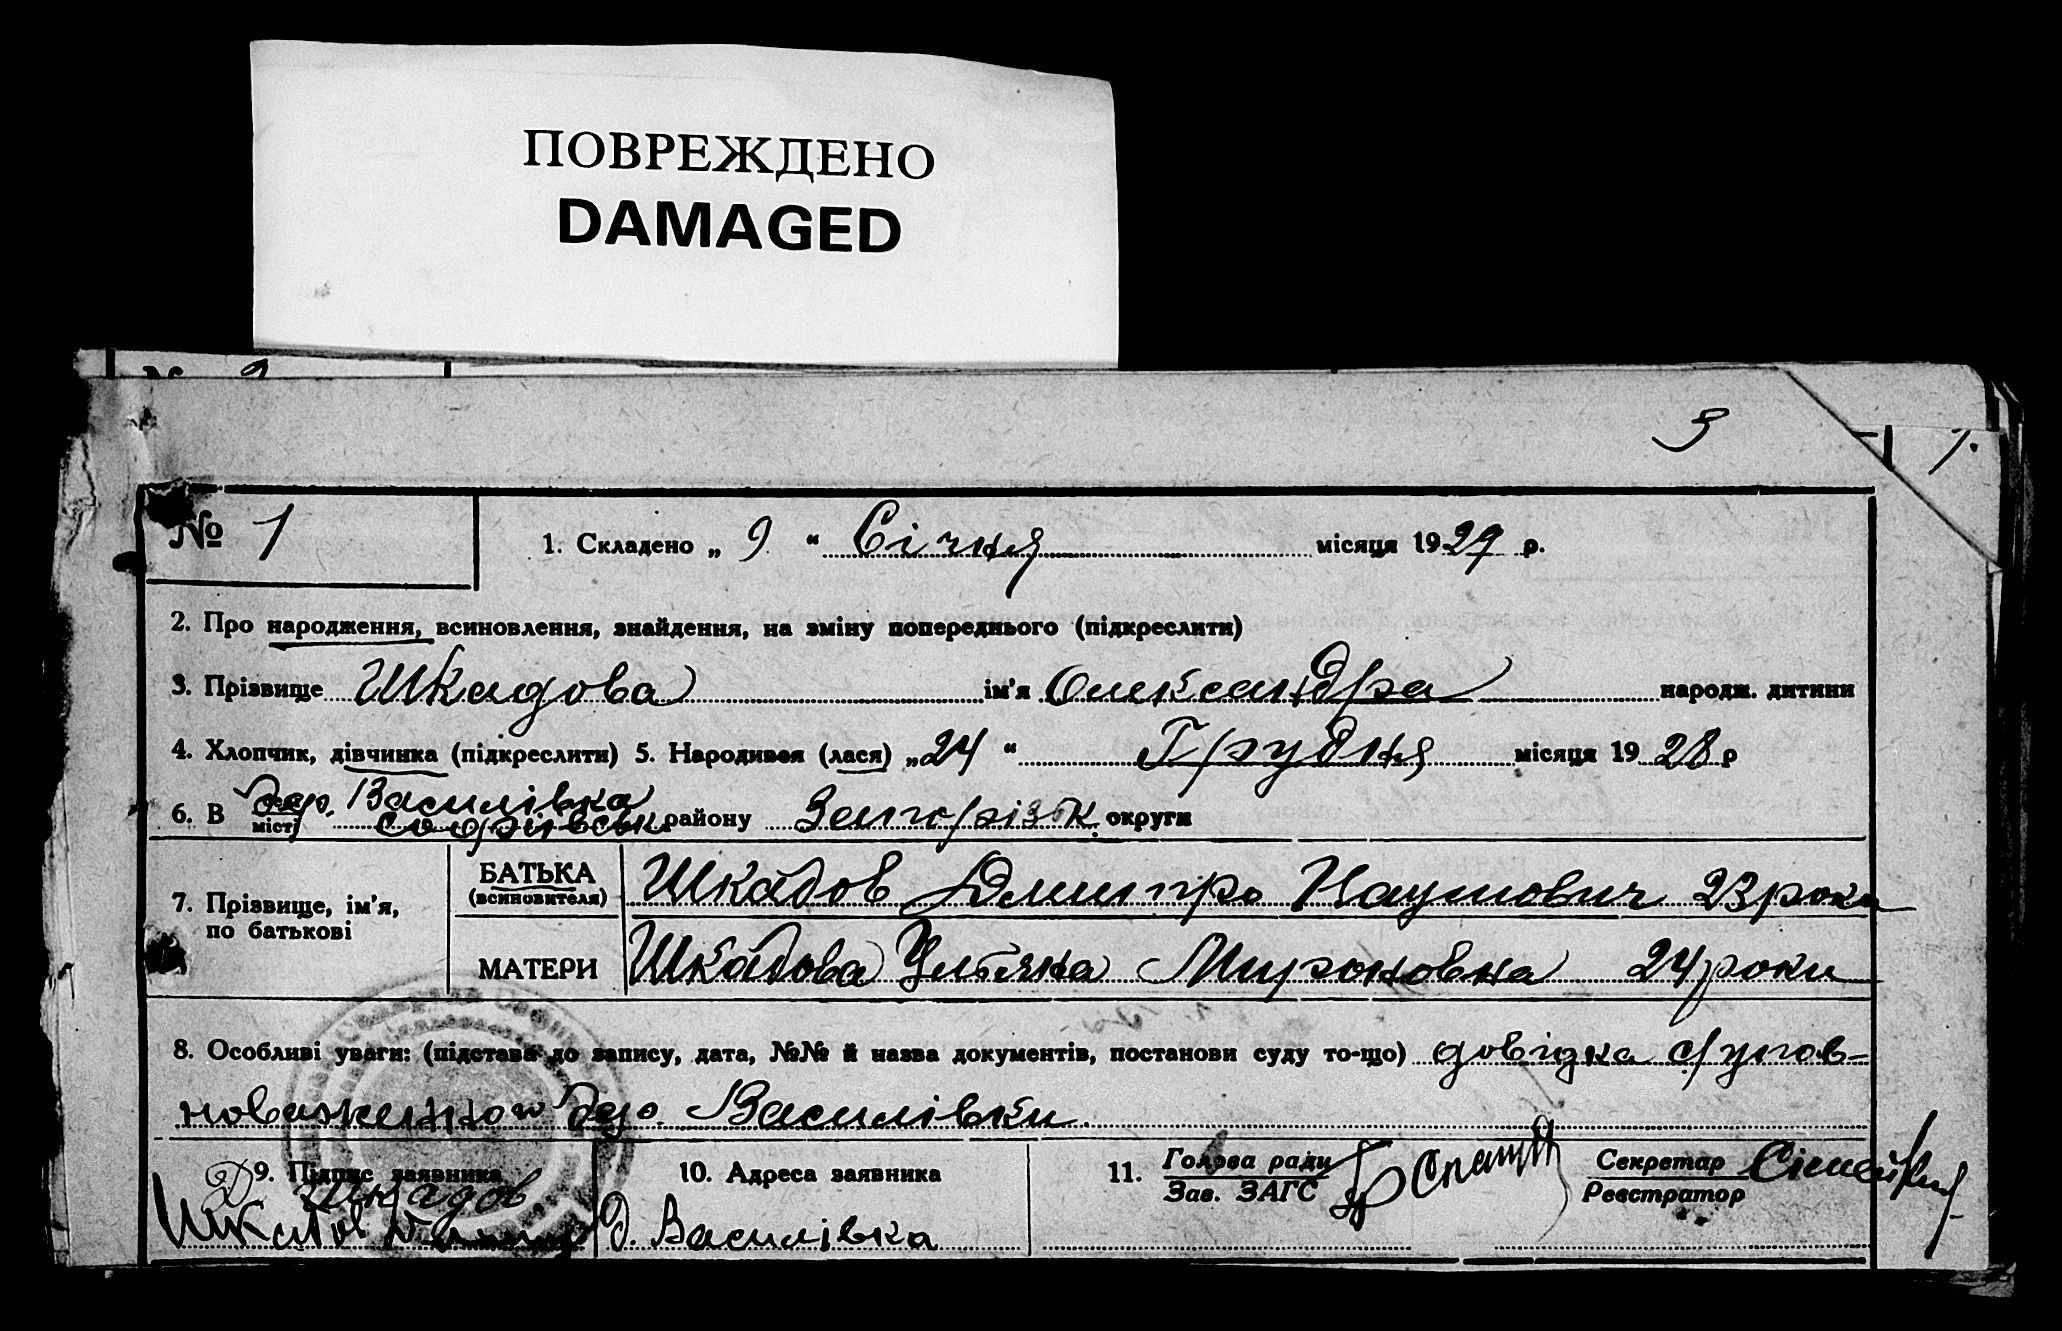 ПОВРЕЖДЕНО
DAMAGED
3
1.
№ 1
1. Складено „ 9 “ Січня місяця 1929 р.
2. Про народження, всиновлення, знайдення, на зміну попереднього (підкреслити)
3. Прізвище Шкадова ім'я Олександра народж. дитини
4. Хлопчик, дівчинка (підкреслити) 5. Народився (лася) „24“ Грудня місяця 1928 р
6. В дер. Василівка району Запорізьк. округи
міст
БАТЬКА
(всиновителя) Шкадов Дмитро Наумович 23 роки
7. Прізвище, ім'я,
по батькові
МАТЕРИ Шкадова Уляна Мироновна 24 роки
8. Особливі уваги: (підстава до запису, дата, №№ й назва документів, постанови суду то-що) довідка с/упов-
новаженного дер. Василівки.
9. Підпис заявника 10. Адреса заявника 11. Голова ради Секретар
Д. Шкадов Зав. ЗАГС Реєстратор
Шкадов д. Василівка